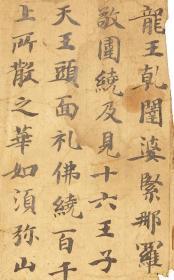 龍王乹闥婆緊那羅
敬圍繞及見十六王子
天王頭面礼佛繞百千
上所散之華如須弥山